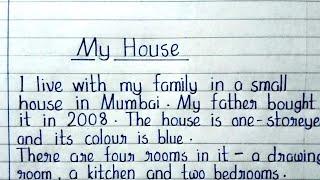 My House
I live with my family in a small
house in Mumbai. My father bought
it in 2008. The house is one-storeye
and its colour is blue.
There are four rooms in it - a drawing
room, a kitchen and two bedrooms.